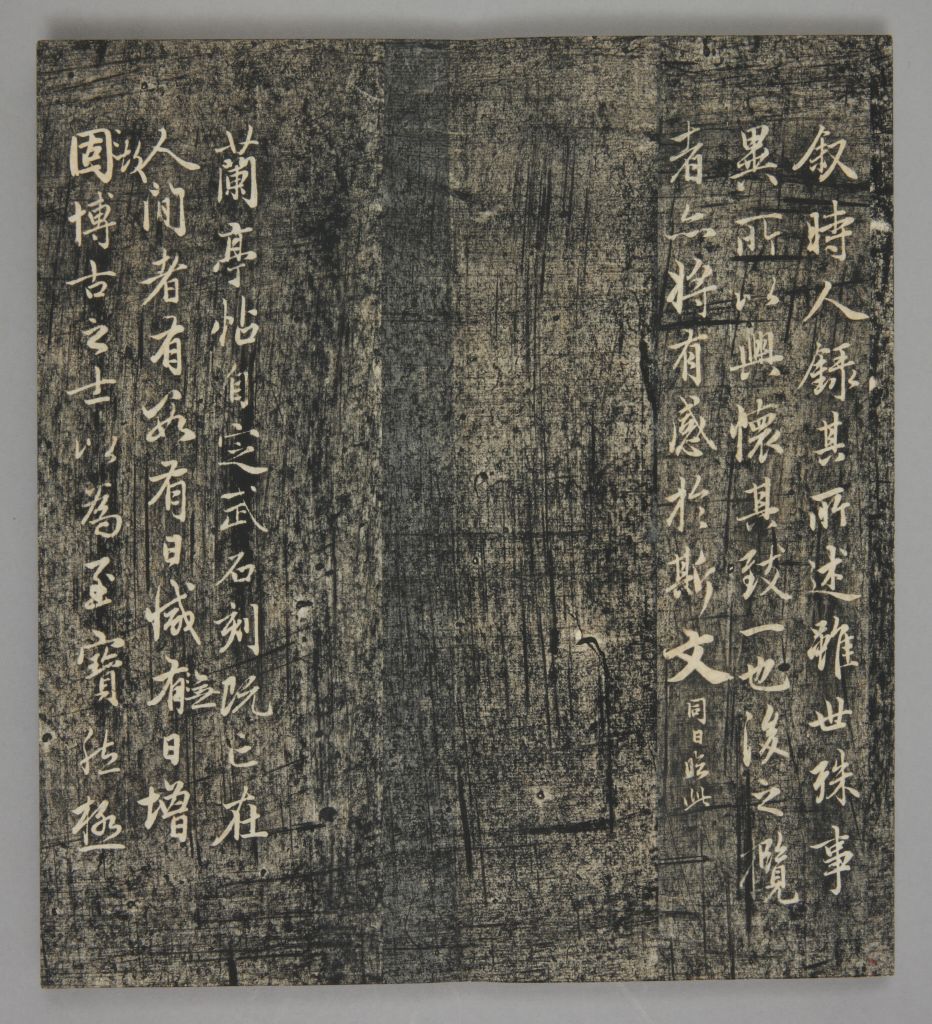 叙時人錄其所述雖世殊事
異所以興懷其致一也後之攬
者亦將有感於斯文 同日臨此
蘭亭帖自定武石刻既亡在
人間者有數有日減有無日增
固故博古之士以為至寶然極